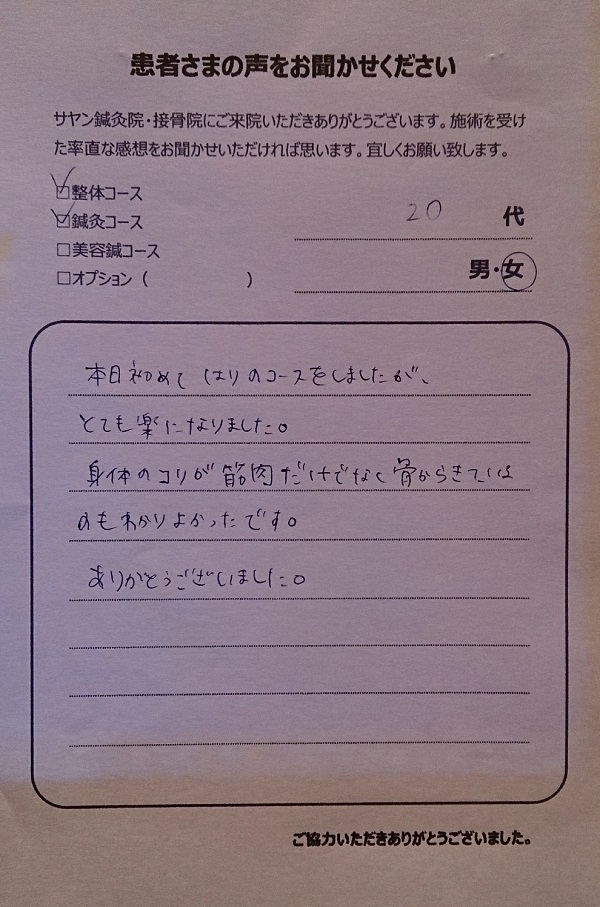 患者さまの声をお聞かせください
サヤン鍼灸院・接骨院にご来院いただきありがとうございます。施術を受け
た率直な感想をお聞かせいただければ思います。宜しくお願い致します。
☑整体コース
☑鍼灸コース
□美容鍼コース
□オプション（　　　　　　）
20 代
男・女
本日初めて はりのコースをしましたが、
とても楽になりました。
身体のコリが筋肉だけでなく骨からきている
のもわかりよかったです。
ありがとうございました。
ご協力いただきありがとうございました。